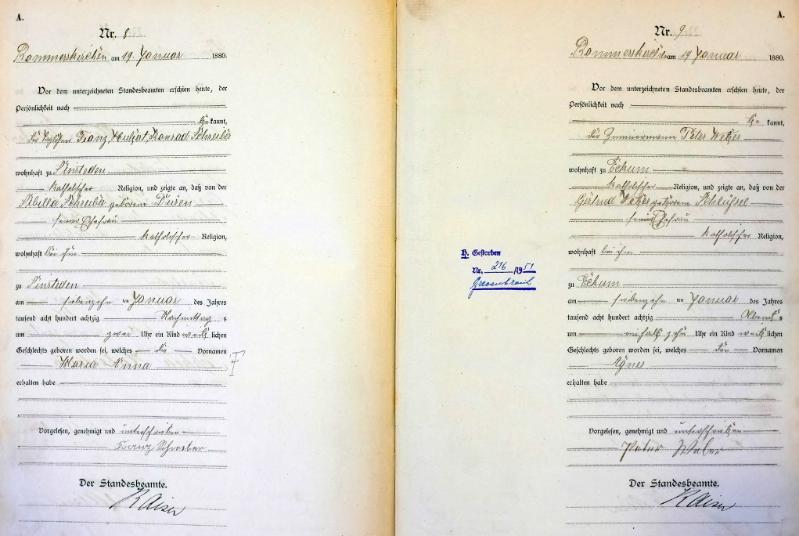 A.
Nr. 8
Rommerskirchen am 19. Januar 1880.
Vor dem unterzeichneten Standesbeamten erschien heute, der
Persönlichkeit nach
be kannt,
der Franz Konrad Schreiber
wohnhaft zu
katholischer Religion, und zeigte an, daß von der
Sibilla Schreiber geborene Düren
seiner Ehefrau
katholischer Religion,
wohnhaft bei ihm
zu
am siebenzehn ten Januar des Jahres
tausend acht hundert achtzig Nachmittag s
um zwei Uhr ein Kind weib lichen
Geschlechts geboren worden sei, welches die Vornamen
Maria Anna
erhalten habe
Vorgelesen, genehmigt und unterschrieben
Franz Schreiber
Der Standesbeamte.
Kaiser
H. Gestorben
Nr. 216/1951
Grevenbroich
A.
Nr. 9
Rommerskirchen am 19 Januar 1880.
Vor dem unterzeichneten Standesbeamten erschien heute, der
Persönlichkeit nach
be kannt,
der Peter
wohnhaft zu Eckum
katholischer Religion, und zeigte an, daß von der
Gertrud geborene Schlüssel
seiner Ehefrau
katholischer Religion,
wohnhaft bei ihm
zu Eckum
am siebenzehn ten Januar des Jahres
tausend acht hundert achtzig Abend s
um zehn Uhr ein Kind weib lichen
Geschlechts geboren worden sei, welches den Vornamen
Agnes
erhalten habe
Vorgelesen, genehmigt und unterschrieben
Peter
Der Standesbeamte.
Kaiser